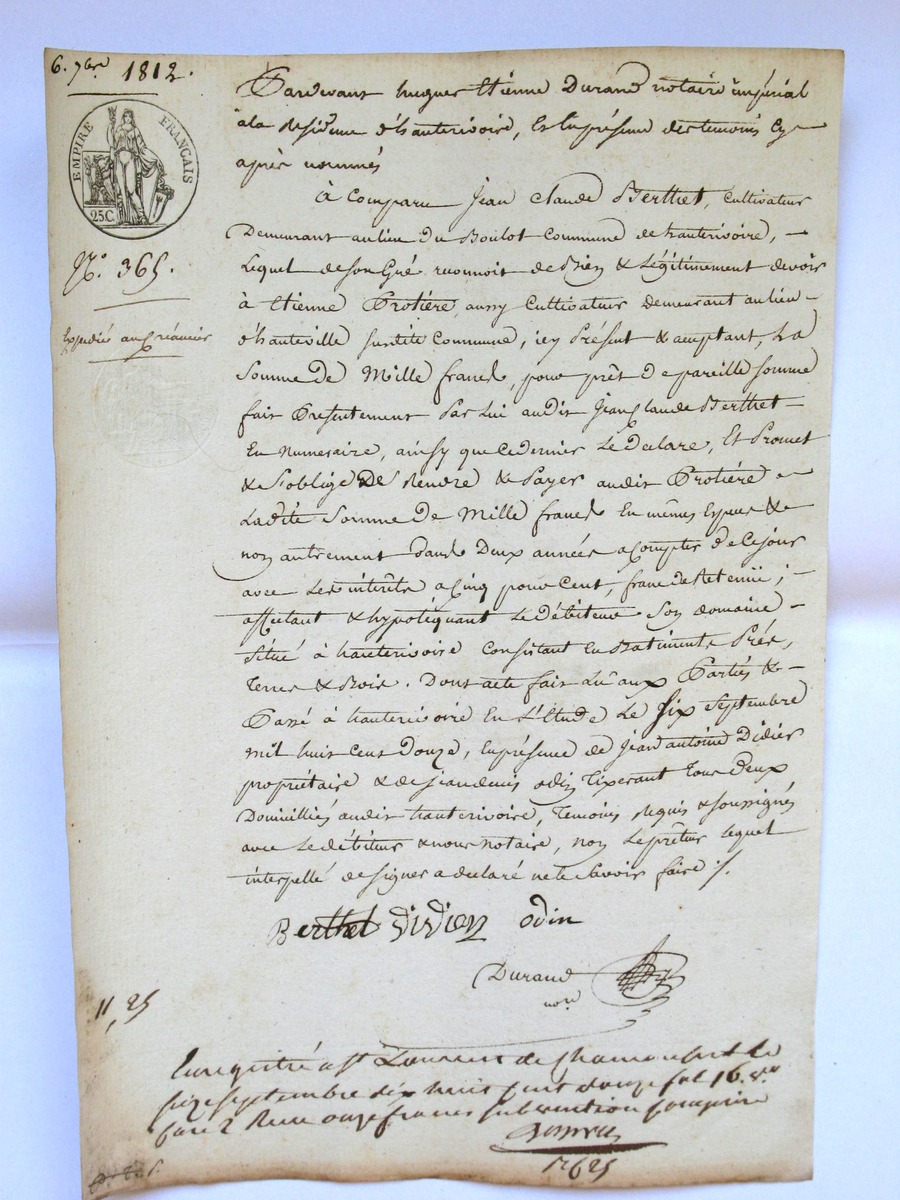 6. 7bre 1812.
EMPIRE FRANÇAIS
25C.
N.º 365.
Expédiée au créancier
Pardevant hugues Etienne Durand notaire impérial
à la Residence d'hauterivoire, et En présence des temoins Cy-
après nommés
à Comparu Jean Claude Berthet, Cultivateur
Demeurant au lieu du Boulot Commune de hauterivoire, -
Lequel de son Gré reconnoit de Bien & Légitimement devoir
à Etienne Protière, aussy Cultivateur demeurant au lieu -
d'hauteville susdite Commune, icy Présent & acceptant, La
Somme De Mille francs, pour prêt de pareille somme
fait Présentement Par Lui audit Jean Claude Berthet -
En Numeraire, ainsy que ce dernier Le Declare, Et Promet
& s'oblige De Rendre & Payer audit Protière -
Ladite Somme De Mille francs En mêmes Espèces &
non autrement dans Deux années a Compter de Ce jour
avec Les interêts a Cinq pour Cent, franc de Retenüe ; -
affectant & hypotéquant Le Débiteur Son domaine -
Situé à hauterivoire Consistant En Batiments Prés,
Terres & Bois. Dont acte fait Lû aux Parties & -
Passé à hauterivoire En L'Etude Le Six Septembre
mil huit Cent Douze, En présence de Jean antoine Didier
propriétaire & de Jean denis odin Tixerant Tous Deux
Domicilliés audit hauterivoire, Temoins Requis & soussignés
avec Le débiteur & nous notaire, non Le preteur lequel
interpellé de signer a declaré ne le Savoir faire ./.
Berthet Didier odin
Durand
nore
11, 25
Enregistré a St Laurent de Chamousset le
seize septembre dix huit cent douze fol 16. vo
case 2 Reçu onze francs subvention comprise